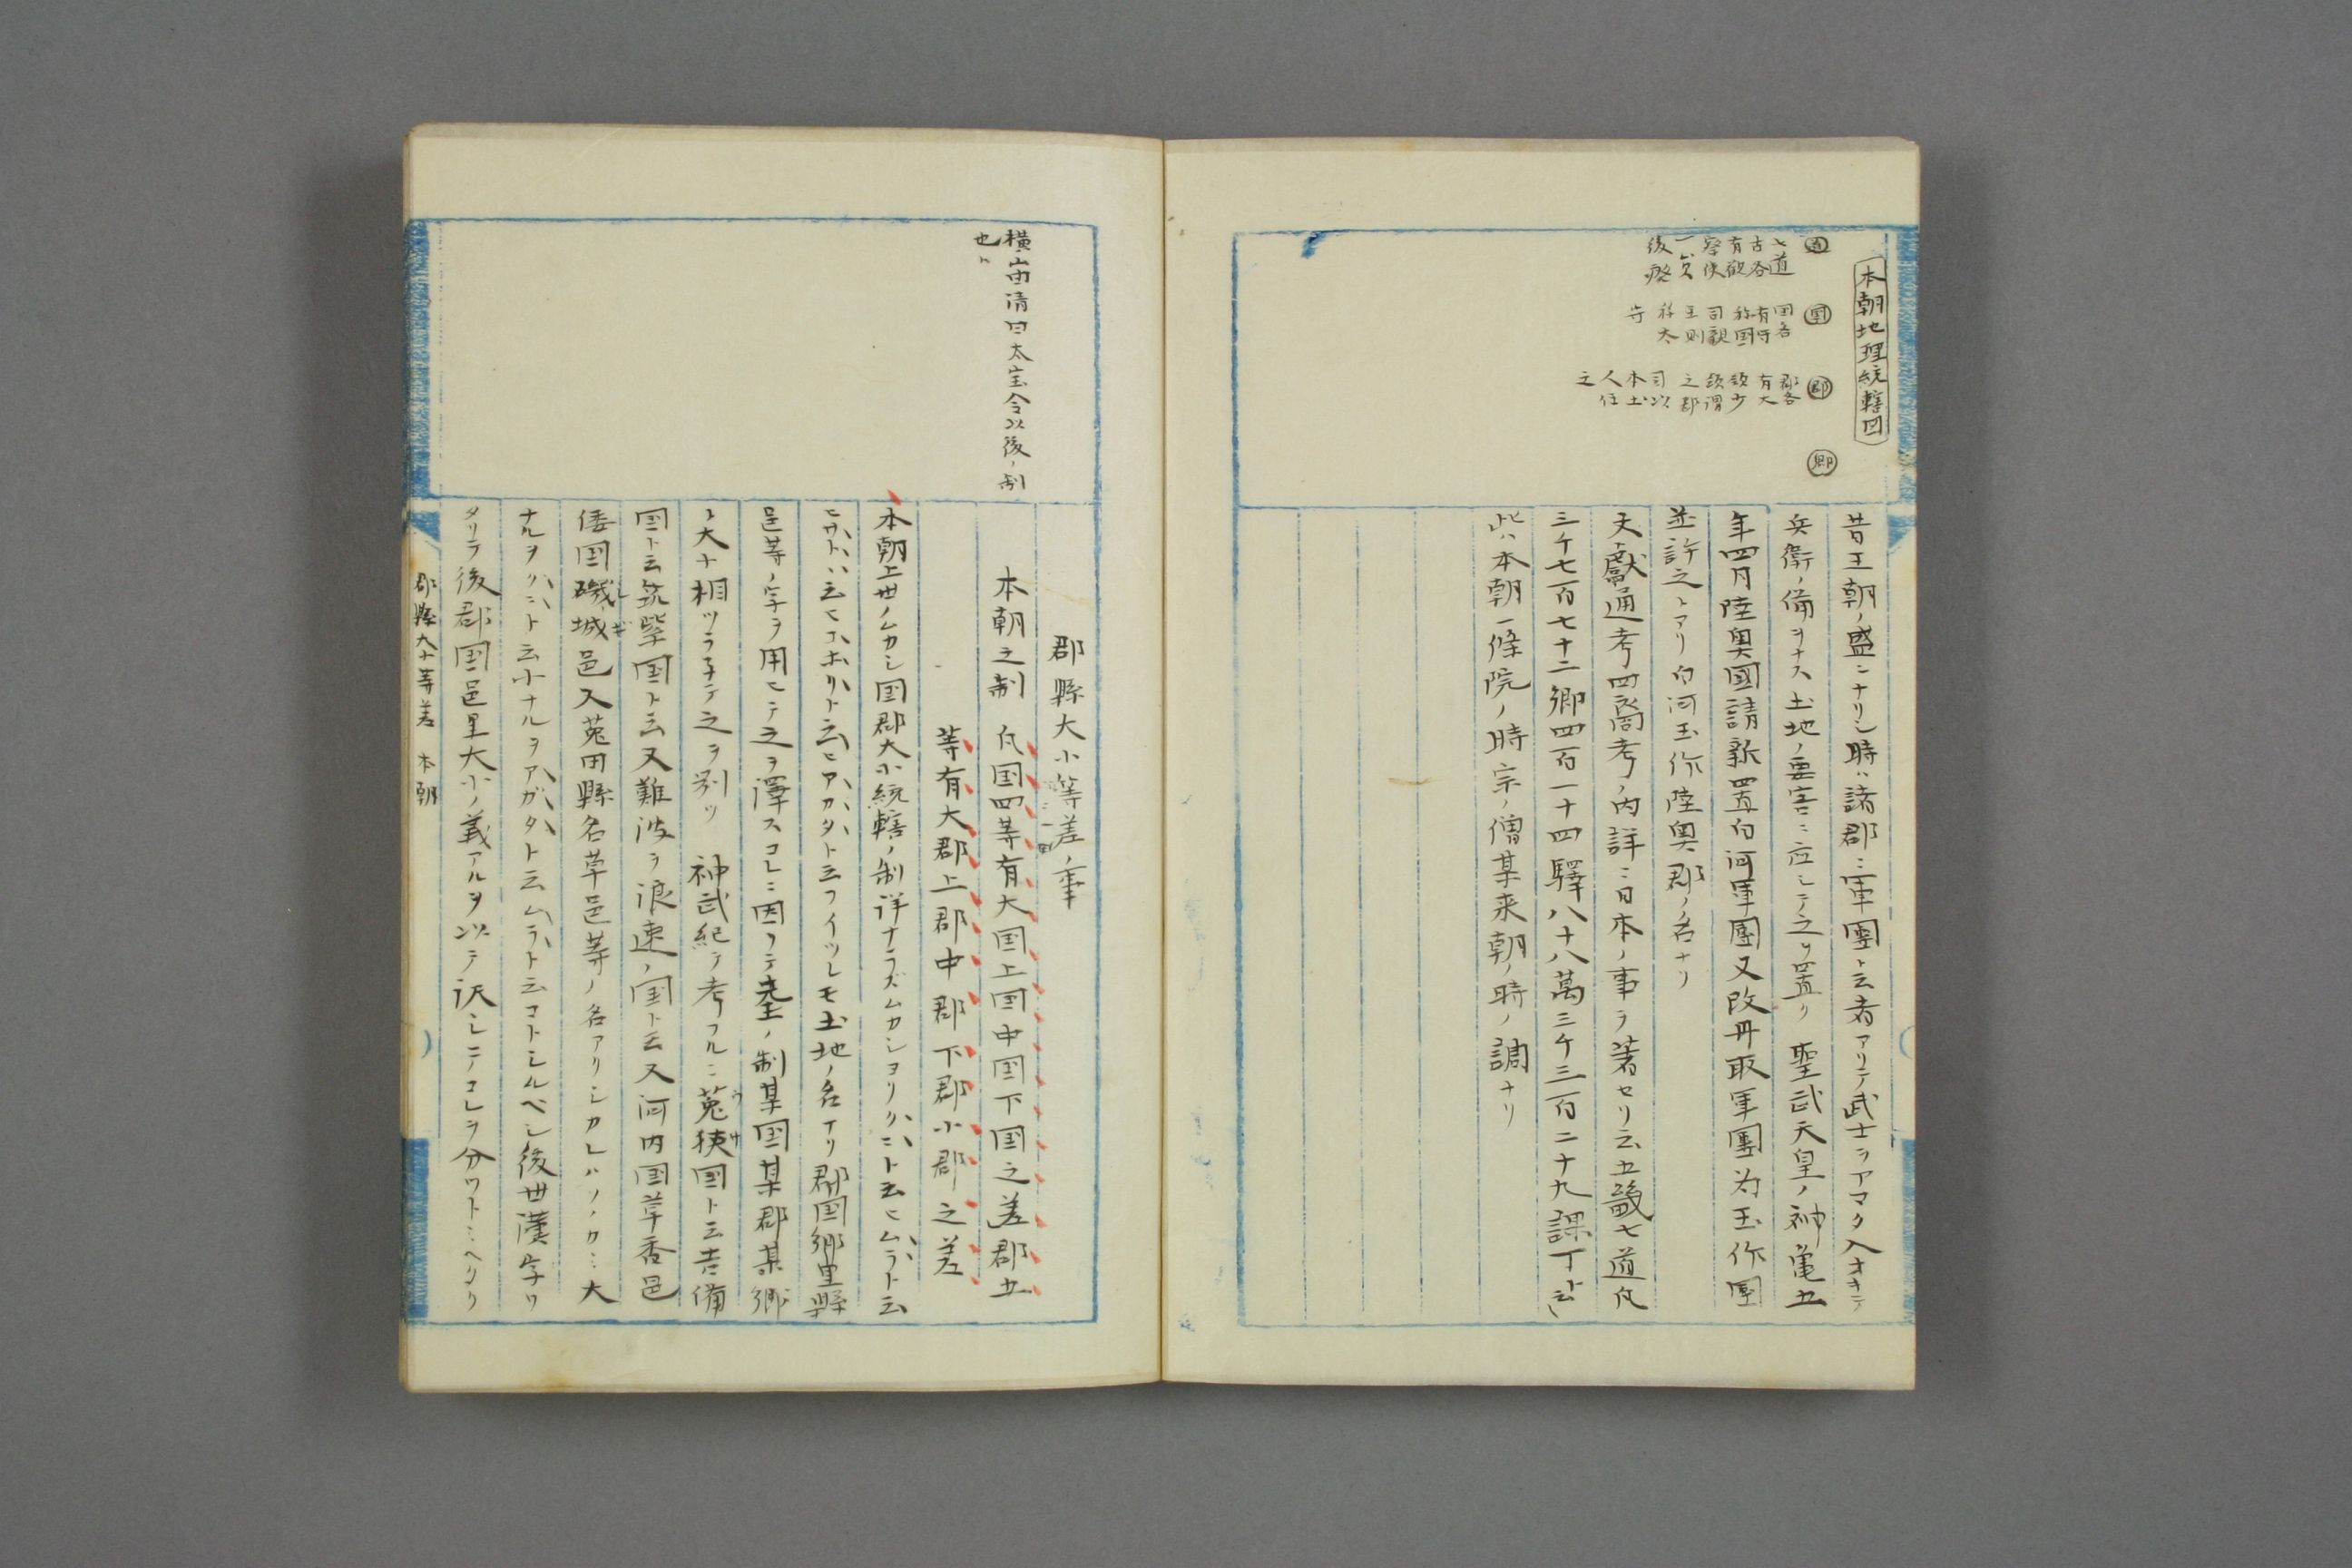 本朝地理統轄図
道
七道
古各
有観
察使
一人
後廃
国
国各
有守
称国
司親
王則
称太
守
郡
郡各
有大
領少
領謂
之郡
司以
本土
人任
之
郷
昔王朝ノ盛ニナリシ時ハ諸郡ニ軍團ト云者アリテ武士ヲアマタ入オキテ
兵衛ノ備ヲナス土地ノ要害ニ応シテ之ヲ置ク 聖武天皇ノ神亀五
年四月陸奥國請新置白河軍團又改丹取軍團為玉作團
並許之トアリ白河玉作陸奥郡ノ名ナリ
文献通考四裔考ノ内詳ニ日本ノ事ヲ著セリ云五畿七道凡
三千七百七十二郷四百一十四驛八十八萬三千三百二十九課丁ト云々
此ハ本朝一條院ノ時宗ノ僧某来朝ノ時ノ調ナリ
横山由清曰太宝令以後ノ制
也
郡縣大小等差ノ事
本朝之制 凡国四等有大国上国中国下国之差郡五
等有大郡上郡中郡下郡小郡之差
本朝上世ノムカシ国郡大小統轄ノ制詳ナラズムカシヨリクニト云ヒムラト云
ヒサトト云ヒコホリト云ヒアガタト云フイツレモ土地ノ名ナリ郡国郷里縣
邑等ノ字ヲ用ヒテ之ヲ澤スコレニ因リテ ノ制某国某郡某郷
ト大ナ相ツラ子テ之ヲ別ツ 神武紀テ考フルニ菟狭国ト云吉備
国ト云筑紫国ト云又難波ヲ浪速ノ国ト云又河内国草香邑
倭国磯城邑又菟田縣名草邑等ノ名アリシカレハソノカミ大
ナルヲクニト云小ナルヲアガタト云ムラト云コトシルベシ後世漢字ワ
タリテ後郡国邑里大小ノ義アルヲ以テ訳シテコレヲ分ツトミヘタリ
郡縣大小等差 本朝